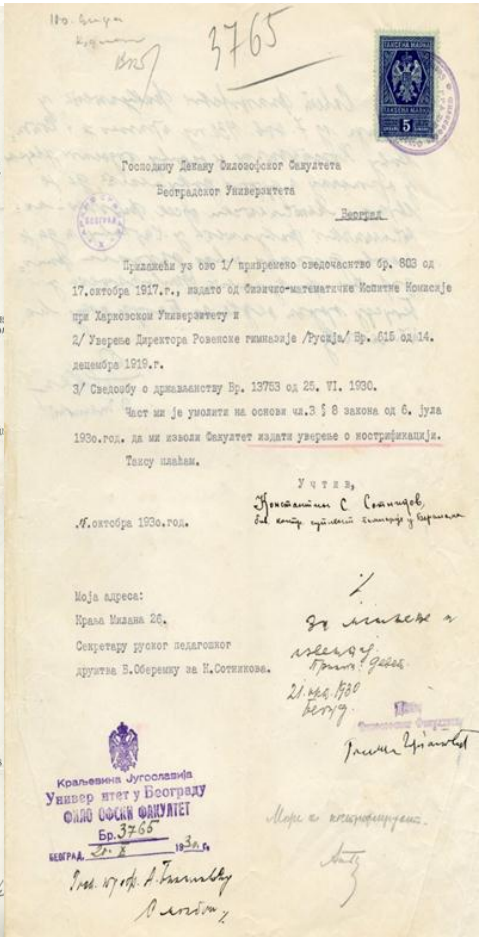 3765
ТАКСЕНА МАРКА
5
Господину Декану Филозофског Факултета
Београдског Универзитета
Београд
БЕОГРАД
Прилажећи уз ово 1/ привремено сведочаство бр. 803 од
17.октобра 1917.г., издато од Физичко-математичке Испитне Комисије
при Харковском Универзитету и
2/ Уверење Директора Ровенске гимназије /Русија/ Бр. 615 од 14.
децембра 1919.г.
3/ Сведоџбу о држављанству Бр. 13753 од 25. VI. 1930.
Част ми је умолити на основи чл.3 § 8 закона од 6. јула
193о.год. да ми изволи Факултет издати уверење о нострификацији.
Таксу плаћам.
Учтив,
Константин С. Сотников,
октобра 193о.год.
Моја адреса:
Краља Милана 26.
Секретару руског педагошког
друштва В.Оберемку за К.Сотникова.
21. 1930
Београд.
Декан
Филозофског Факултета
Краљевина Југославија
Универ итет у Београду
ФИЛО ОФСКИ ФАКУЛТЕТ
Бр. 3765
БЕОГРАД, 20. X 1930 г.
Може се нострификовати.